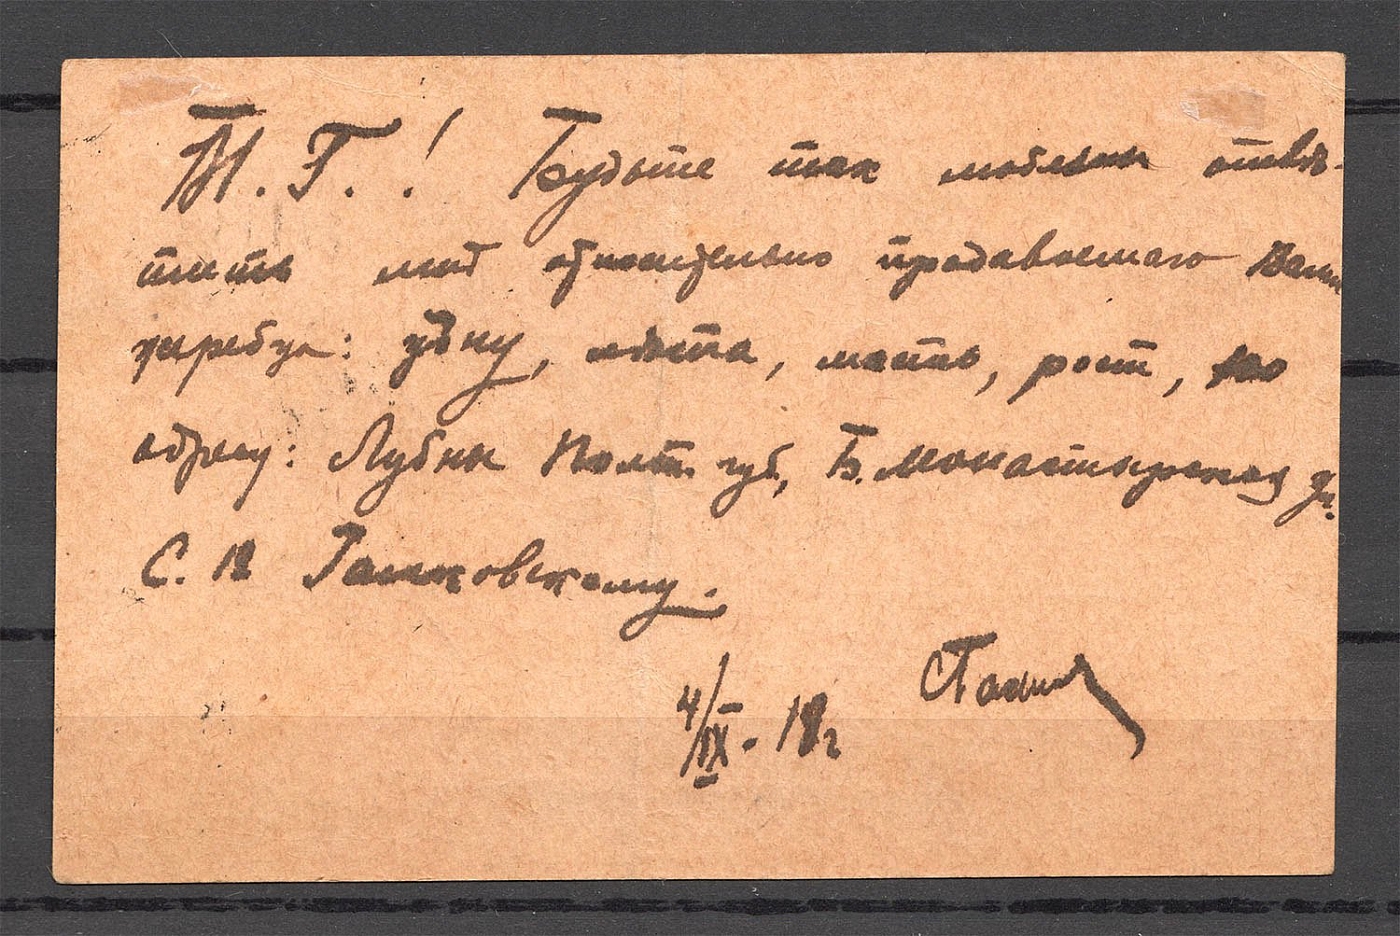 М. Г.! Будьте так любезны отвѣ-
тить мнѣ относительно продаваемаго Вами
жеребца: цѣну, лѣта, масть, рост, по
адресу: Лубны Полт. губ, Б. Монастырская ул.
С. В
4/IX - 18 г